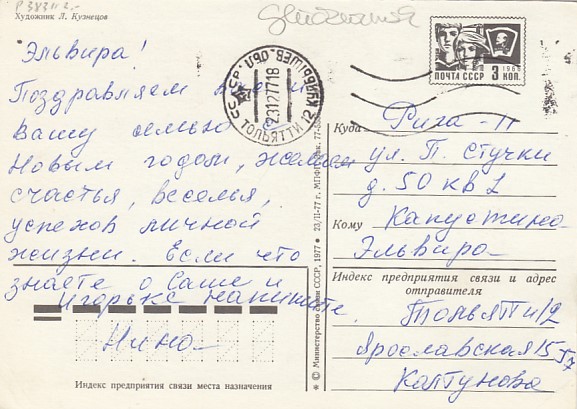 Художник Л. Кузнецов
Эльвира!
Поздравляем вас и
вашу семью с
Новым годом, желаем
счастья, веселья,
успехов личной
жизни. Если что
знаете о Саше и
Игорьке напишите
Нина
Индекс предприятия связи места назначения
* © Министерство связи СССР, 1977 • 23/II-77 г. МПФГ
СССР
КУЙБЫШЕВ. ОБЛ
23127718
ТОЛЬЯТТИ 12
ПОЧТА СССР 3 КОП.
1966
Куда Рига-П
ул. П. Стучки
д. 50 кв 1
Кому Капустина
Эльвира
Индекс предприятия связи и адрес
отправителя
Тольятти/12
Ярославская 15-57
Колтунова